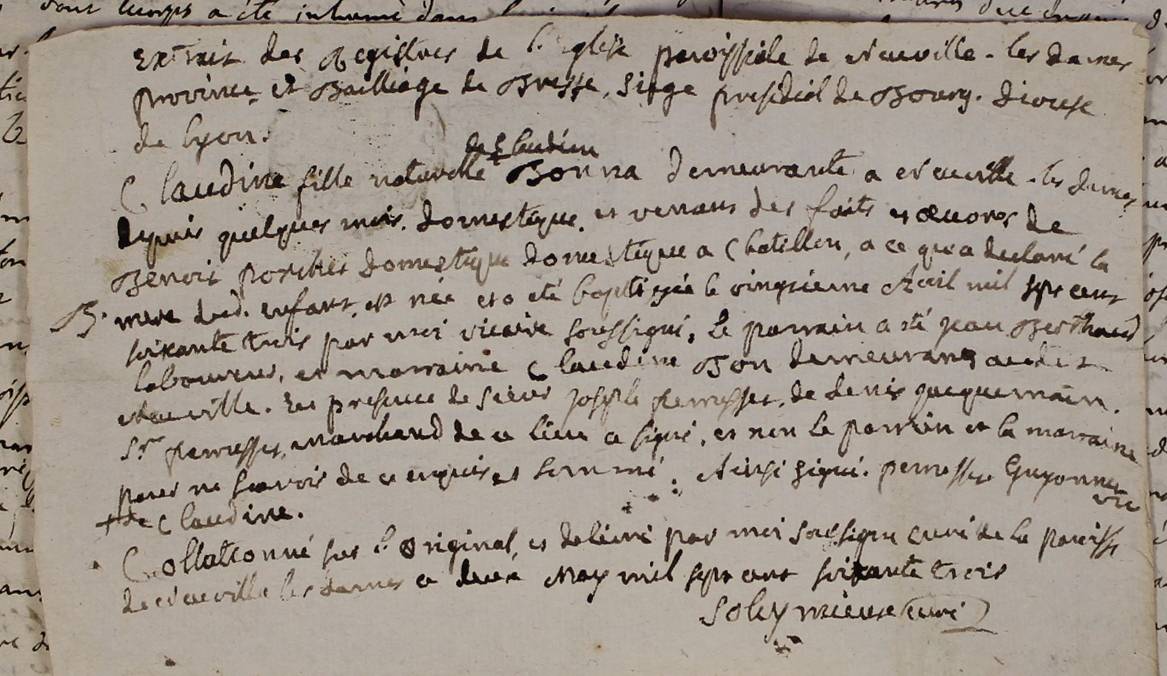 Extrait des Registres de l'eglise paroissiale de neuville-les dames
province et Bailliage de Bresse, siege presidial de Bourg. diocese
de lyon.
de Claudine
Claudine fille naturelle Bonna demeurante a neuville-les dames
depuis quelques mois. domestique. et venans des faits et œuvres de
Benoit domestique domestique a Chatillon, a ce qu'a declaré la
B. mere dud. enfant, est née et a eté baptisée le vingtieme Avril mil sept cent
soixante trois par moi vicaire soussigné, Le parrain a été jean Berthaud
laboureur, et marraine Claudine Bon demeurans audit
neuville. En presence de sieur joseph perresset, de denis jacquemain.
Sr perresset, marchand de ce lieu a signé, et non le parrain et la marraine
pour ne savoir de ce enquis et sommé. Ainsi signé. perresset Guyonnet
vic
+ de Claudine.
Collationné sur l'original, et delivré par moi soussigné curé de la paroisse
de neuville les dames ce deux May mil sept cent soixante trois
Solymieux curé